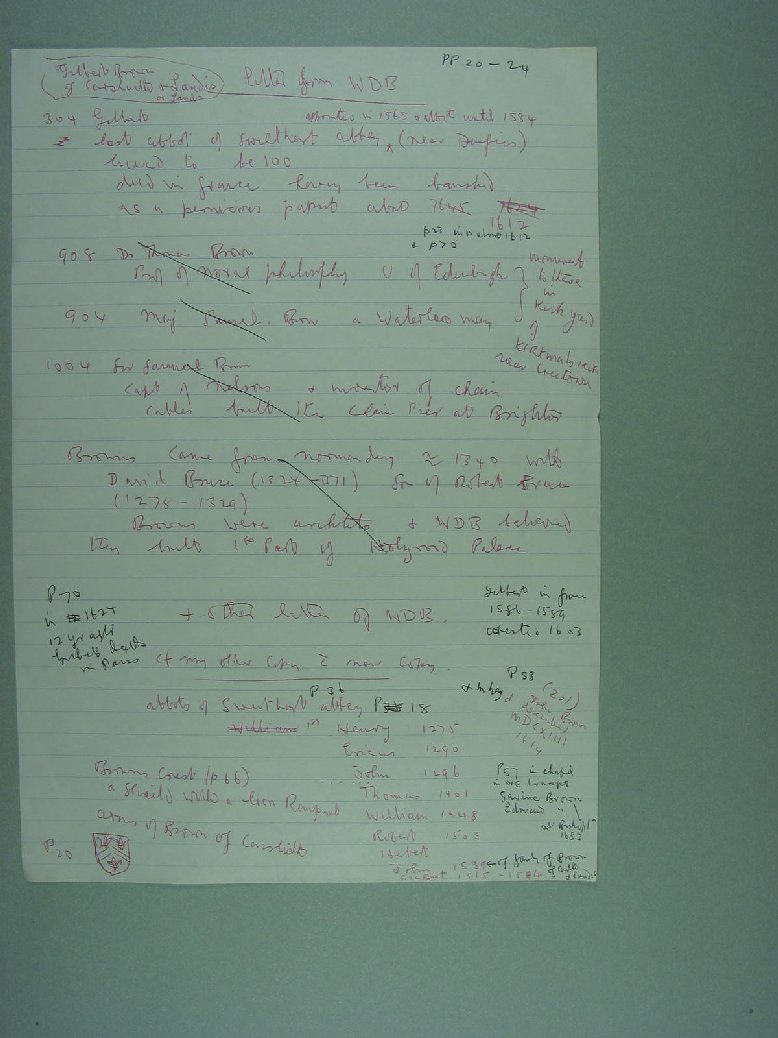 PP 20 - 24
Gilbert Brown
of Carsluith & Landis
or Lands
letter from WDB
304 Gilbert abbot until 1584
last abbot of Sweetheart abbey (near Dumfries)
lived to be 100
died in france having been banished
as a pernicious papist about 1645 1624
1612
p23 in about 1612
& p70
908 Dr Thomas Brown
Prof of Moral philosophy U of Edinburgh
904 Maj Samuel. Brown a Waterloo man
monument
to these
in
Kirk yard
of
Kirkmabreck
near Creetown
1004 Sir Samuel Brown
Capt of Nelsons & inventor of chain
cables built the Chain Pier at Brighton
Browns Came from Normandy ≈ 1340 with
David Bruce (1324 - 1371) Son of Robert Bruce
(1275 - 1329)
Browns were architects & WDB believed
they built 1st Part of Holyrood Palace
P70
in 1627
12 yrs after
Gilberts death
in Paris
+ other letter of WDB.
Gilbert in france
1586 - 1589
1603
Cf my older copy & new copy.
P 36
abbots of Sweetheart abbey P 18
William 1st Henry 1275
Ericus 1290
John 1296
Thomas 1401
William 1448
Robert 1503
John 1539
Gilbert 1565 - 1584
P 58
(201)
John Brown
MDCXIIII
1614
Browns Crest (p 66)
a Shield with a Lion Rampant
arms of Brown of Carsluith
P20
P57 in chapel
Brown
Edward "
1653
of family of Brown